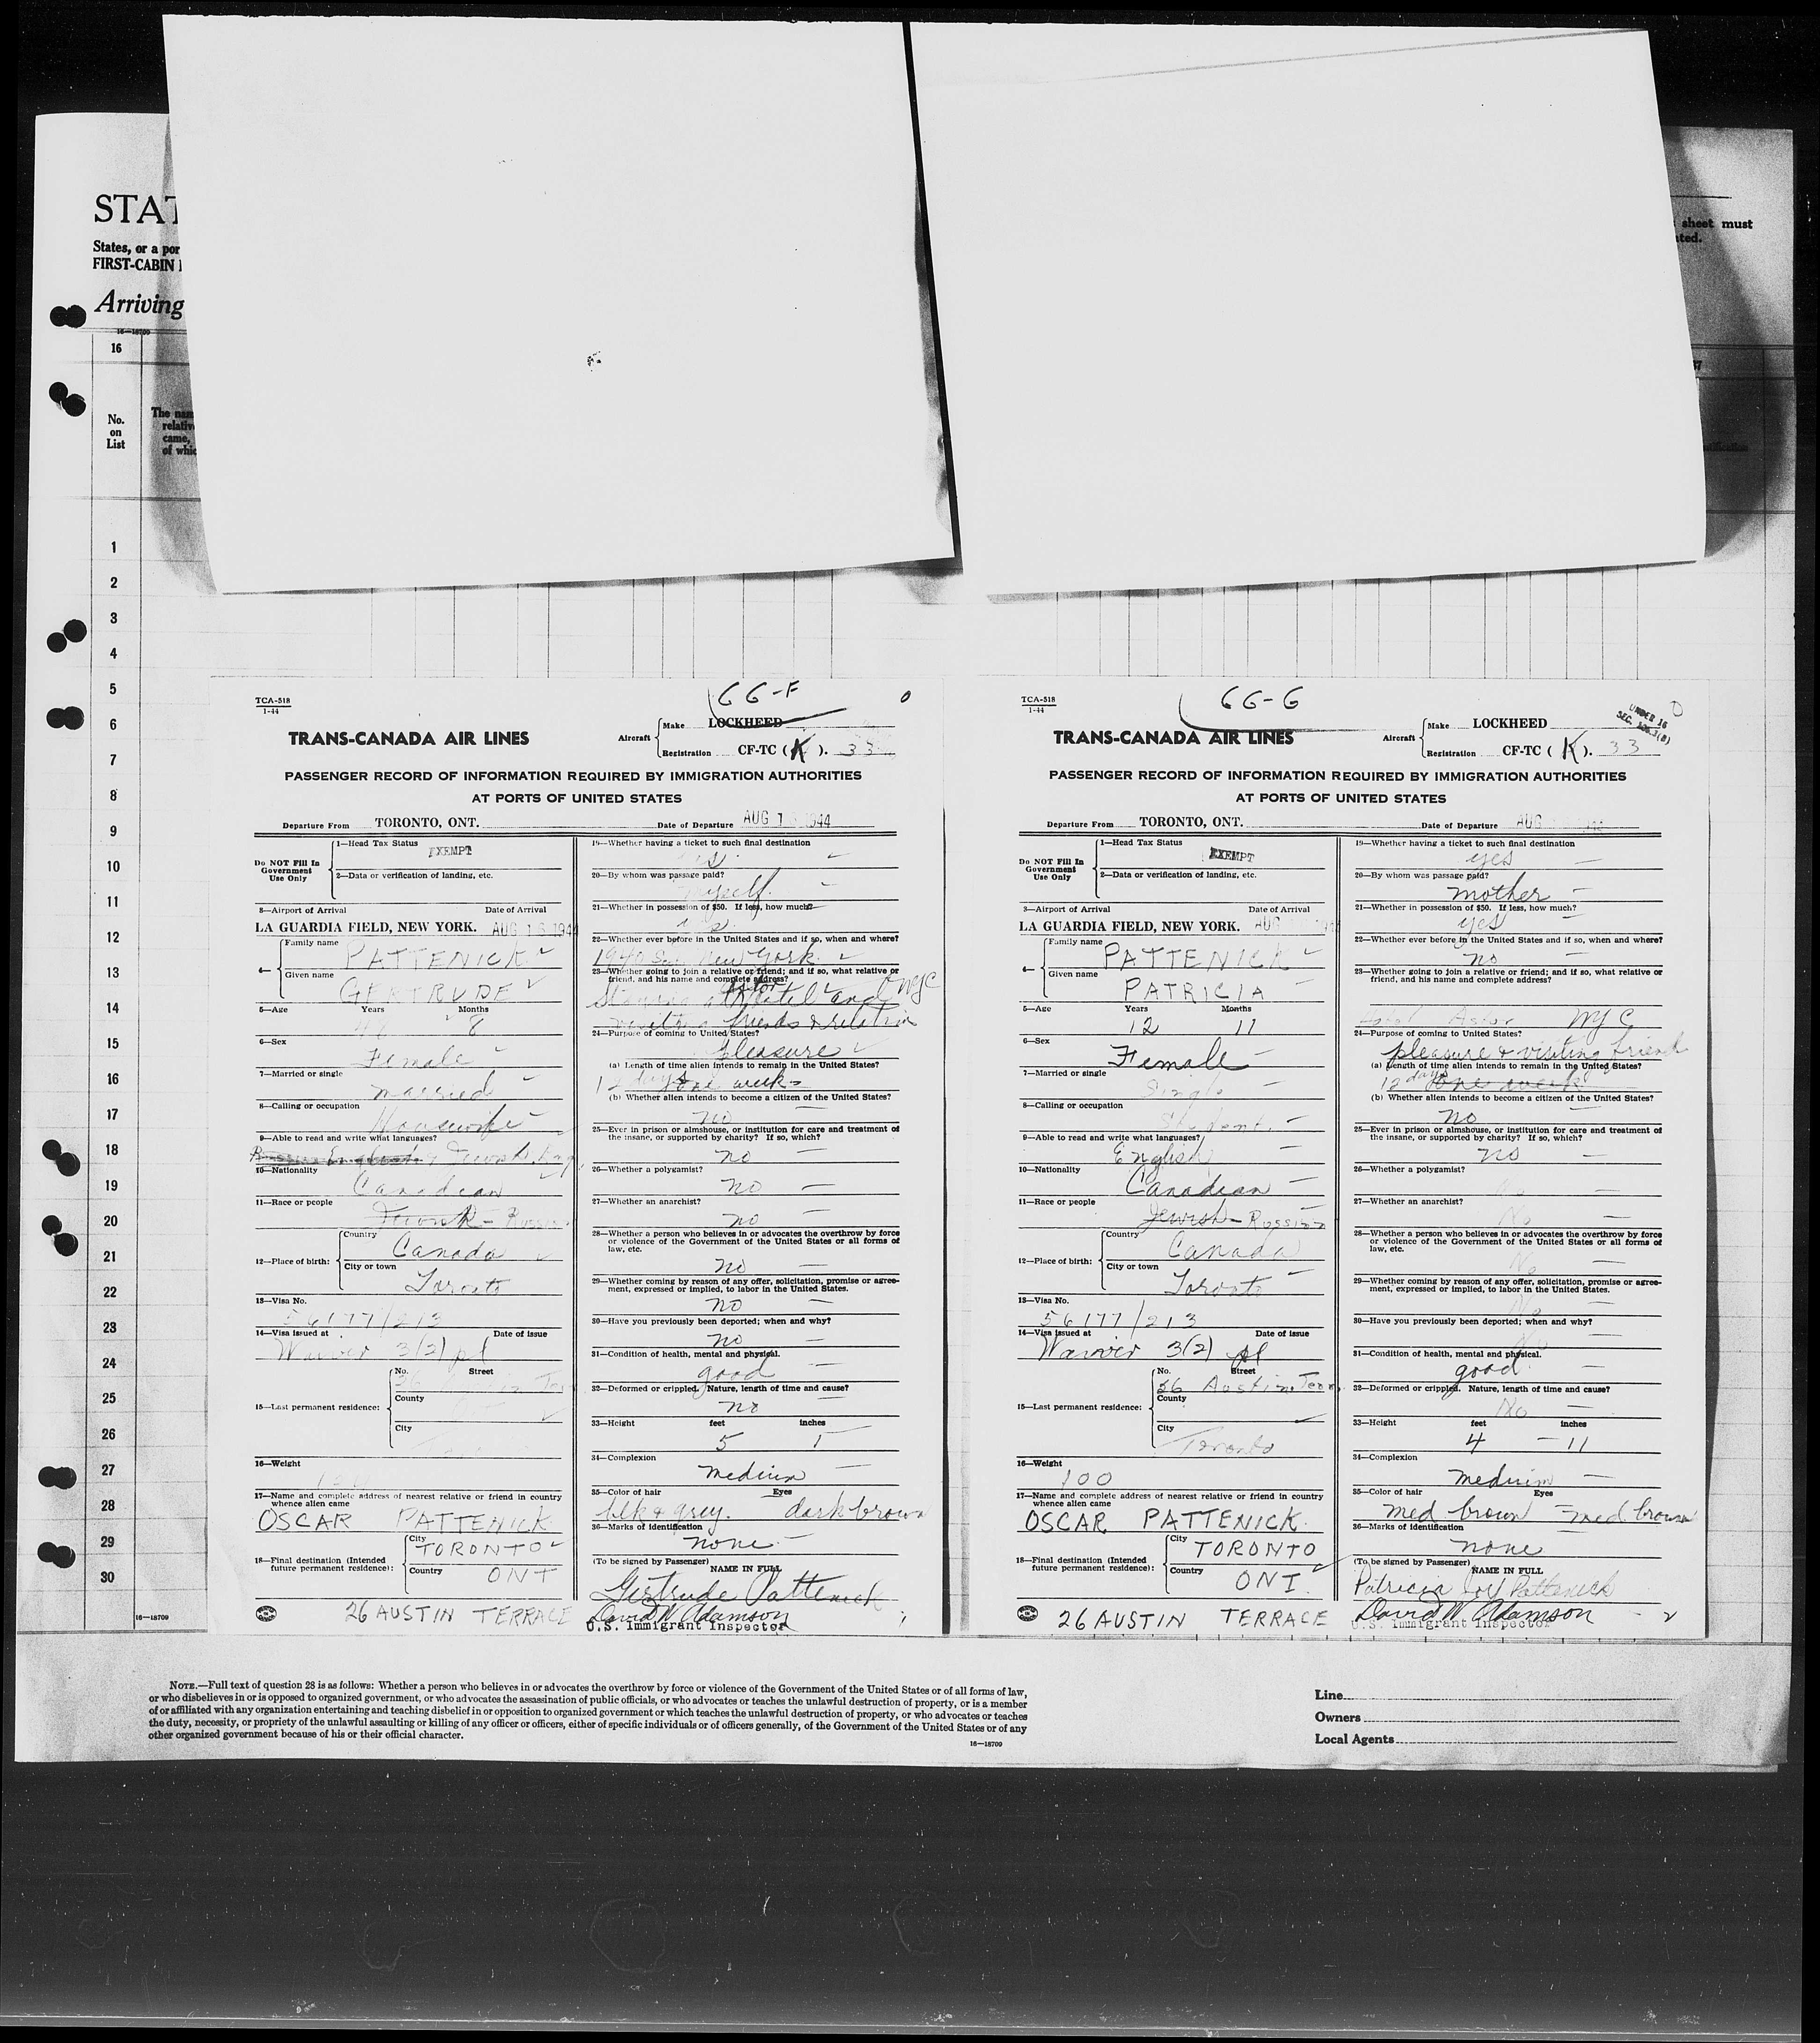 STAT
States, or a por
FIRST-CABIN
Arriving
16—18709
16
No.
on
List
The nam
relativ
came,
of whic
sheet must
ted.
37
1
2
3
4
5
6
7
8
9
10
11
12
13
14
15
16
17
18
19
20
21
22
23
24
25
26
27
28
29
30
16—18709
66-F
0
TCA-518
1-44
TRANS-CANADA AIR LINES
Aircraft
Make LOCKHEED
Registration CF-TC (K). 33
PASSENGER RECORD OF INFORMATION REQUIRED BY IMMIGRATION AUTHORITIES
AT PORTS OF UNITED STATES
Departure From TORONTO, ONT. Date of Departure AUG 1 1944
Do NOT Fill In
Government
Use Only
1—Head Tax Status EXEMPT
2—Data or verification of landing, etc.
3—Airport of Arrival Date of Arrival
LA GUARDIA FIELD, NEW YORK. AUG 1 194
4—
Family name PATTENICK
Given name GERTRUDE
5—Age Years Months
8
6—Sex Female
7—Married or single married
8—Calling or occupation Housewife
9—Able to read and write what languages?
English
10—Nationality Canadian
11—Race or people
12—Place of birth:
Country Canada
City or town Toronto
13—Visa No.
56177/213
14—Visa issued at Date of issue
Waiver 3(2) pl
15—Last permanent residence:
No. Street
County
City
16—Weight
17—Name and complete address of nearest relative or friend in country
whence alien came
OSCAR PATTENICK
18—Final destination (Intended
future permanent residence):
City TORONTO
Country ONT
26 AUSTIN TERRACE
19—Whether having a ticket to such final destination
yes
20—By whom was passage paid?
myself
21—Whether in possession of $50. If less, how much?
yes
22—Whether ever before in the United States and if so, when and where?
1940 New York
23—Whether going to join a relative or friend; and if so, what relative or
friend, and his name and complete address?
Staying at Hotel Astor and NYC
visiting friends & relation
24—Purpose of coming to United States?
pleasure
(a) Length of time alien intends to remain in the United States?
12 days one week
(b) Whether alien intends to become a citizen of the United States?
no
25—Ever in prison or almshouse, or institution for care and treatment of
the insane, or supported by charity? If so, which?
no
26—Whether a polygamist?
no
27—Whether an anarchist?
no
28—Whether a person who believes in or advocates the overthrow by force
or violence of the Government of the United States or all forms of
law, etc.
no
29—Whether coming by reason of any offer, solicitation, promise or agree-
ment, expressed or implied, to labor in the United States.
no
30—Have you previously been deported; when and why?
no
31—Condition of health, mental and physical.
good
32—Deformed or crippled. Nature, length of time and cause?
no
33—Height feet inches
5 1
34—Complexion
medium
35—Color of hair Eyes
blk & grey. dark brown
36—Marks of identification
none
(To be signed by Passenger) NAME IN FULL
Gertrude Pattenick
David W. Adamson
U.S. Immigrant Inspector
66-G
UNDER 16
TCA-518
1-44
TRANS-CANADA AIR LINES
Aircraft
Make LOCKHEED
Registration CF-TC (K). 33
PASSENGER RECORD OF INFORMATION REQUIRED BY IMMIGRATION AUTHORITIES
AT PORTS OF UNITED STATES
Departure From TORONTO, ONT. Date of Departure AUG
Do NOT Fill In
Government
Use Only
1—Head Tax Status EXEMPT
2—Data or verification of landing, etc.
3—Airport of Arrival Date of Arrival
LA GUARDIA FIELD, NEW YORK. AUG
4—
Family name PATTENICK
Given name PATRICIA
5—Age Years Months
12 11
6—Sex Female
7—Married or single Single
8—Calling or occupation Student
9—Able to read and write what languages?
English
10—Nationality Canadian
11—Race or people Jewish - Russian
12—Place of birth:
Country Canada
City or town Toronto
13—Visa No.
56177/213
14—Visa issued at Date of issue
Waiver 3(2) pl
15—Last permanent residence:
No. Street
26 Austin Terr
County
City
Toronto
16—Weight
100
17—Name and complete address of nearest relative or friend in country
whence alien came
OSCAR PATTENICK
18—Final destination (Intended
future permanent residence):
City TORONTO
Country ONT.
26 AUSTIN TERRACE
19—Whether having a ticket to such final destination
yes
20—By whom was passage paid?
mother
21—Whether in possession of $50. If less, how much?
yes
22—Whether ever before in the United States and if so, when and where?
no
23—Whether going to join a relative or friend; and if so, what relative or
friend, and his name and complete address?
Hotel Astor NYC
24—Purpose of coming to United States?
pleasure & visiting friend
(a) Length of time alien intends to remain in the United States?
12 days one week
(b) Whether alien intends to become a citizen of the United States?
no
25—Ever in prison or almshouse, or institution for care and treatment of
the insane, or supported by charity? If so, which?
no
26—Whether a polygamist?
No
27—Whether an anarchist?
No
28—Whether a person who believes in or advocates the overthrow by force
or violence of the Government of the United States or all forms of
law, etc.
No
29—Whether coming by reason of any offer, solicitation, promise or agree-
ment, expressed or implied, to labor in the United States.
No
30—Have you previously been deported; when and why?
No
31—Condition of health, mental and physical.
good
32—Deformed or crippled. Nature, length of time and cause?
No
33—Height feet inches
4 - 11
34—Complexion
medium
35—Color of hair Eyes
med brown med brown
36—Marks of identification
none
(To be signed by Passenger) NAME IN FULL
Patricia Joy Pattenick
David W. Adamson
U.S. Immigrant Inspector
NOTE.—Full text of question 28 is as follows: Whether a person who believes in or advocates the overthrow by force or violence of the Government of the United States or of all forms of law,
or who disbelieves in or is opposed to organized government, or who advocates the assassination of public officials, or who advocates or teaches the unlawful destruction of property, or is a member
of or affiliated with any organization entertaining and teaching disbelief in or opposition to organized government or which teaches the unlawful destruction of property, or who advocates or teaches
the duty, necessity, or propriety of the unlawful assaulting or killing of any officer or officers, either of specific individuals or of officers generally, of the Government of the United States or of any
other organized government because of his or their official character.
16—18709
Line
Owners
Local Agents